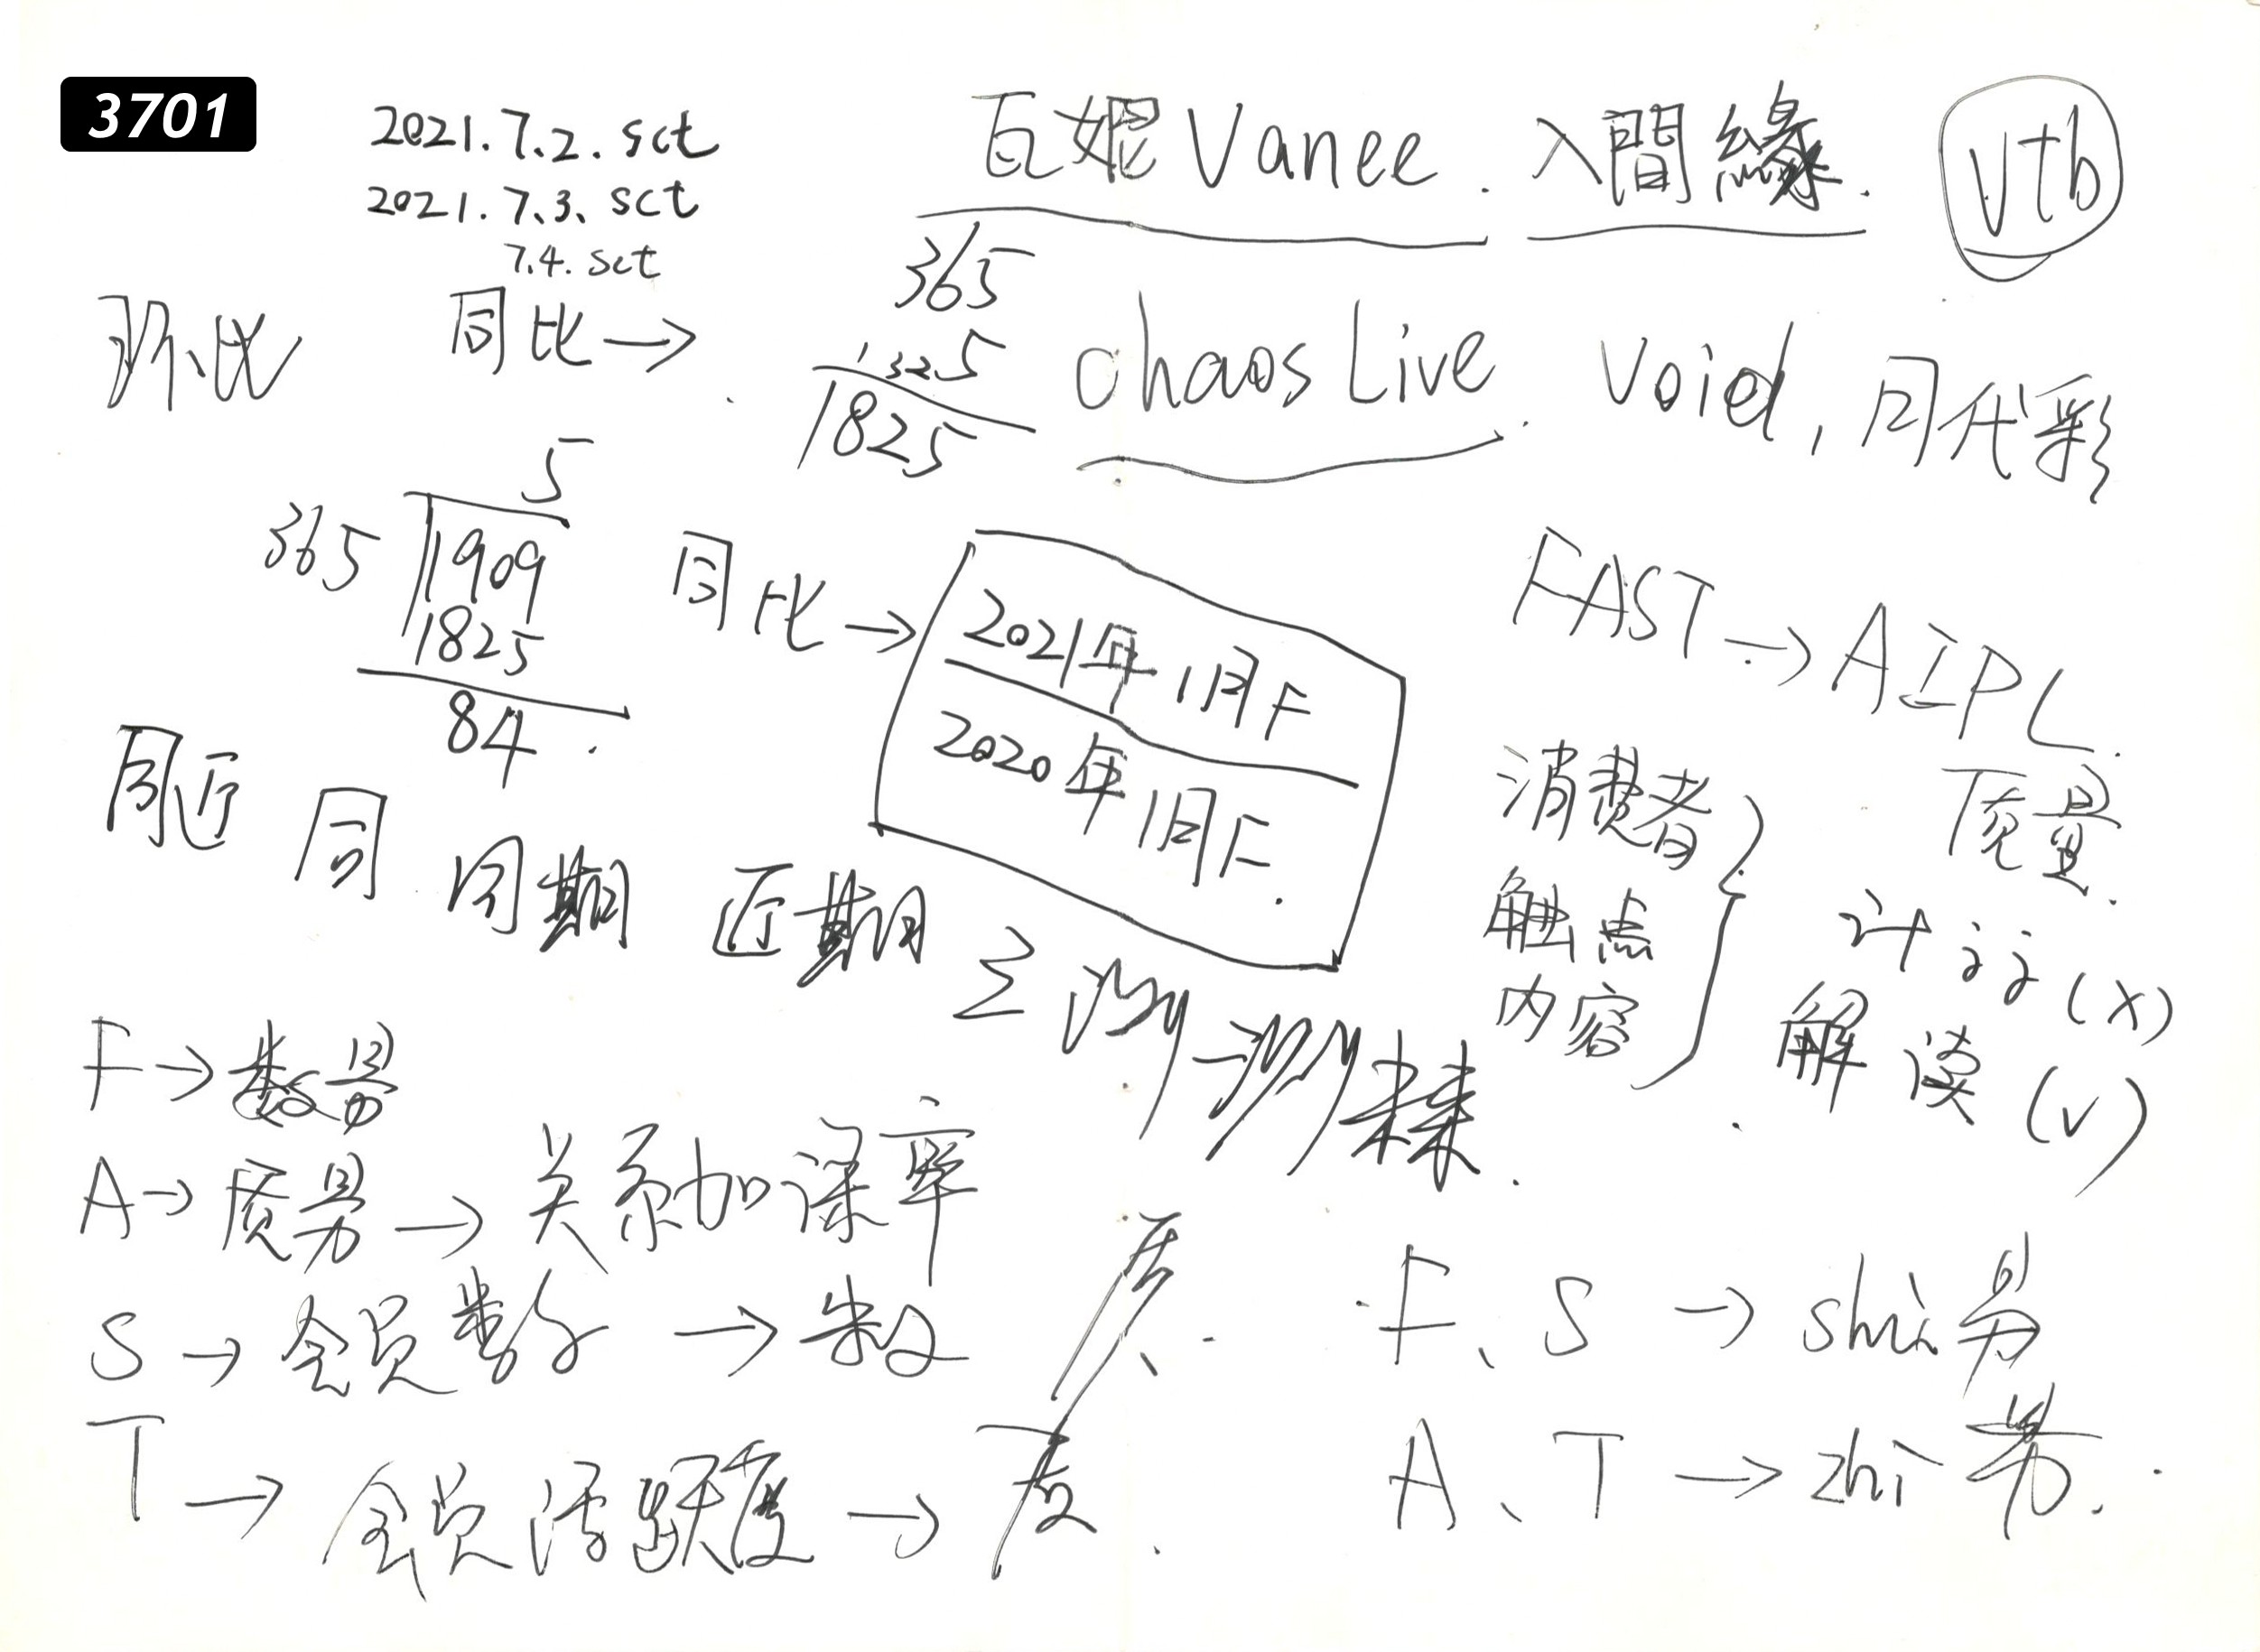 3701
2021.7.2. sct
2021.7.3. sct
7.4. sct
瓦妮 Vanee. 入間緣.
vtb
同比→
365
5
1825
chaos Live. Void,
5
365 1909
1825
84.
同比→
2021年1月F
2020年1月F.
FAST→AIPL.
质量.
消费者
触点
内容
计 (x)
解读 (v)
同 同期 近期
未来.
F→数量
A→质量→关系加深率
S→会员数→数
T→会员活跃度→
F、S→shu量
A、T→zhi量.